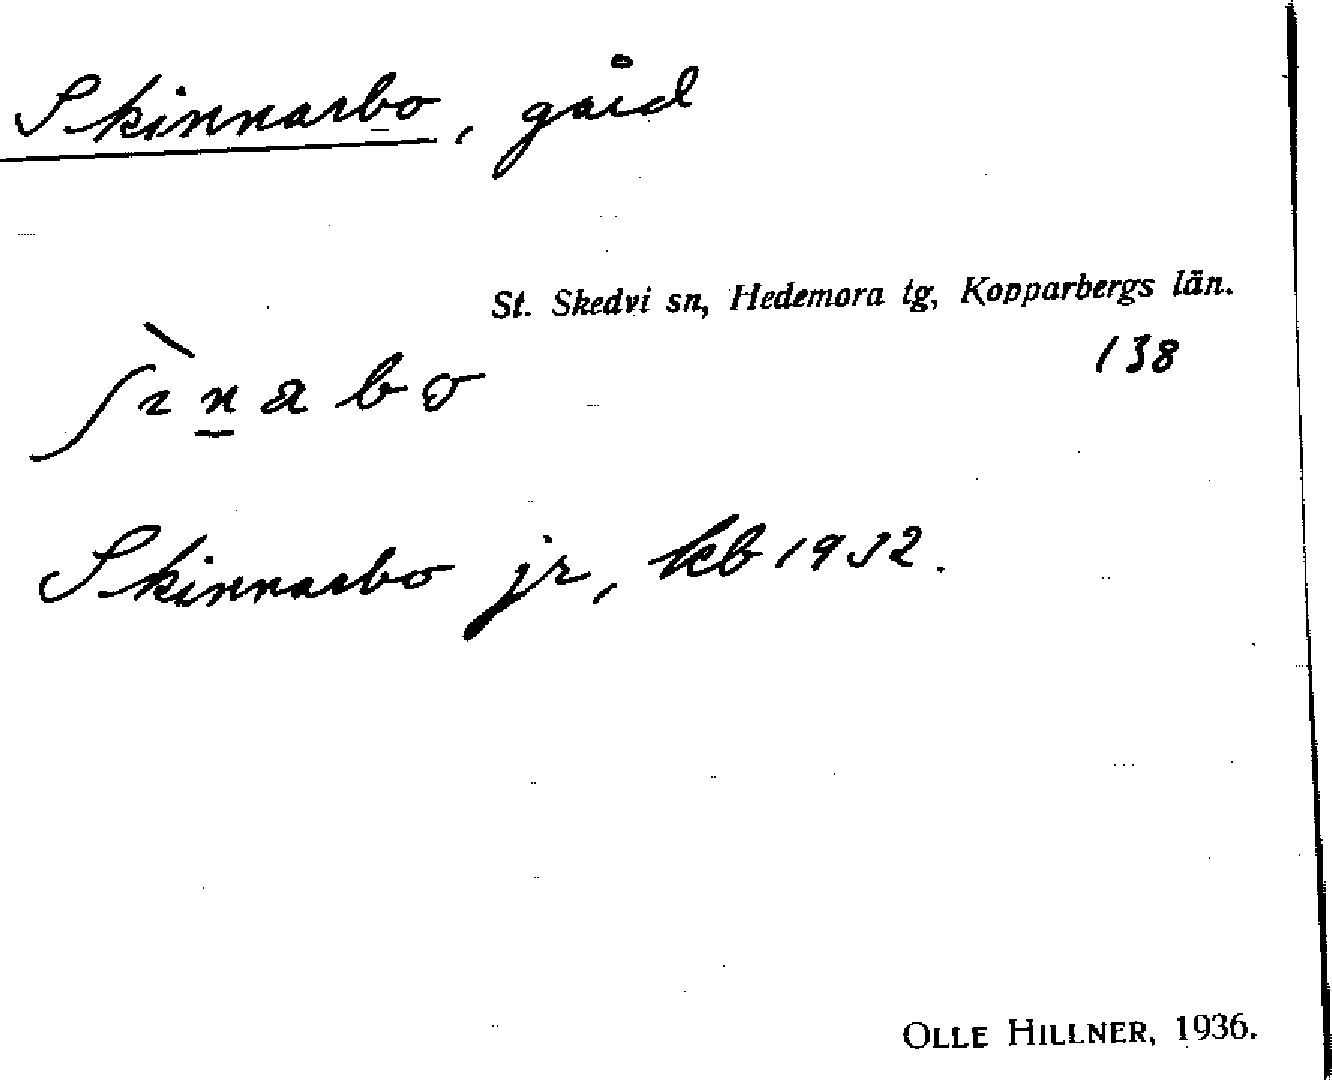 Skinnarbo, gård
St. Skedvi sn, Hedemora tg, Kopparbergs län.
138
ʃɪ̀n̲abo
Skinnarbo jr, kb 1932.
OLLE HILLNER, 1936.